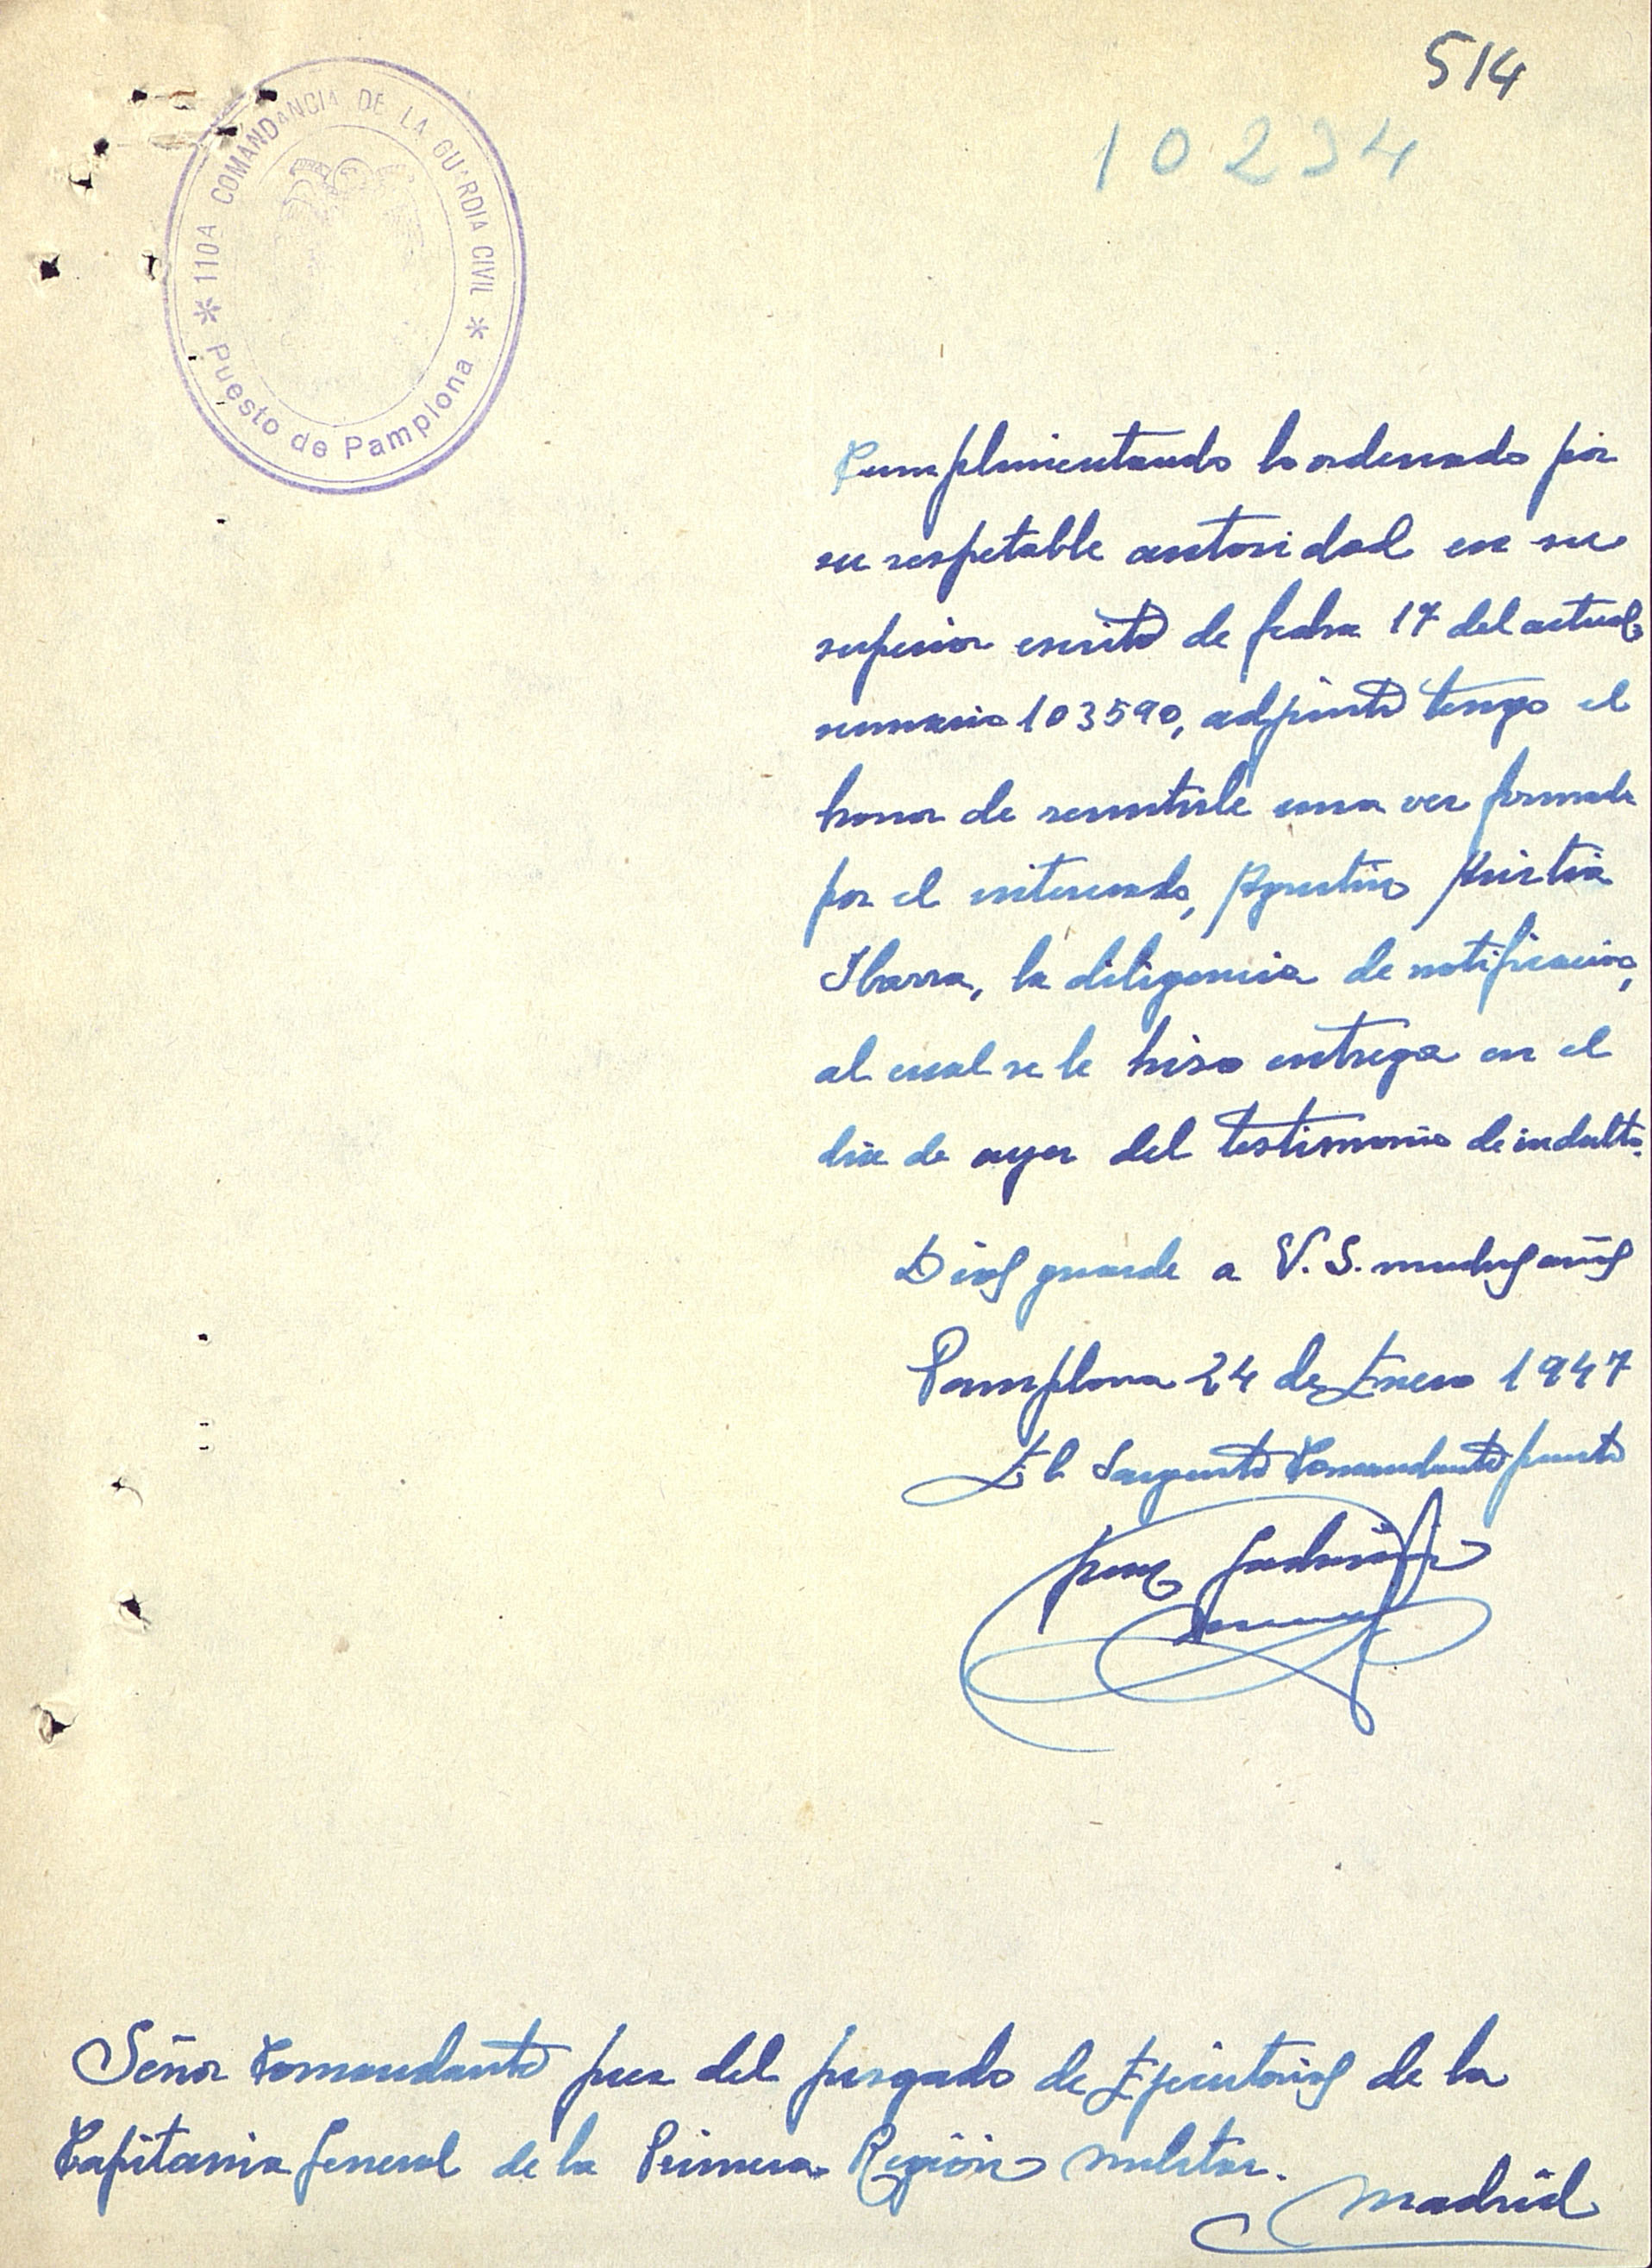 514
10234
110A COMANDANCIA DE LA GUARDIA CIVIL
Puesto de Pamplona
Cumplimentando lo ordenado por
su respetable autoridad en su
superior escrito de fecha 17 del actual,
sumario 103590, adjunto tengo el
honor de remitirle una vez firmada
por el interesado, Agustin
Ibarra, la diligencia de notificacion,
al cual se le hiso entrega en el
dia de ayer del testimonio de indulto.
Dios guarde a V.S. muchos años
Pamplona 24 de Enero 1947
El Sargento Comandante puesto
Señor Comandante juez del jusgado de Ejecutorias de la
Capitania General de la Primera Región militar.
Madrid